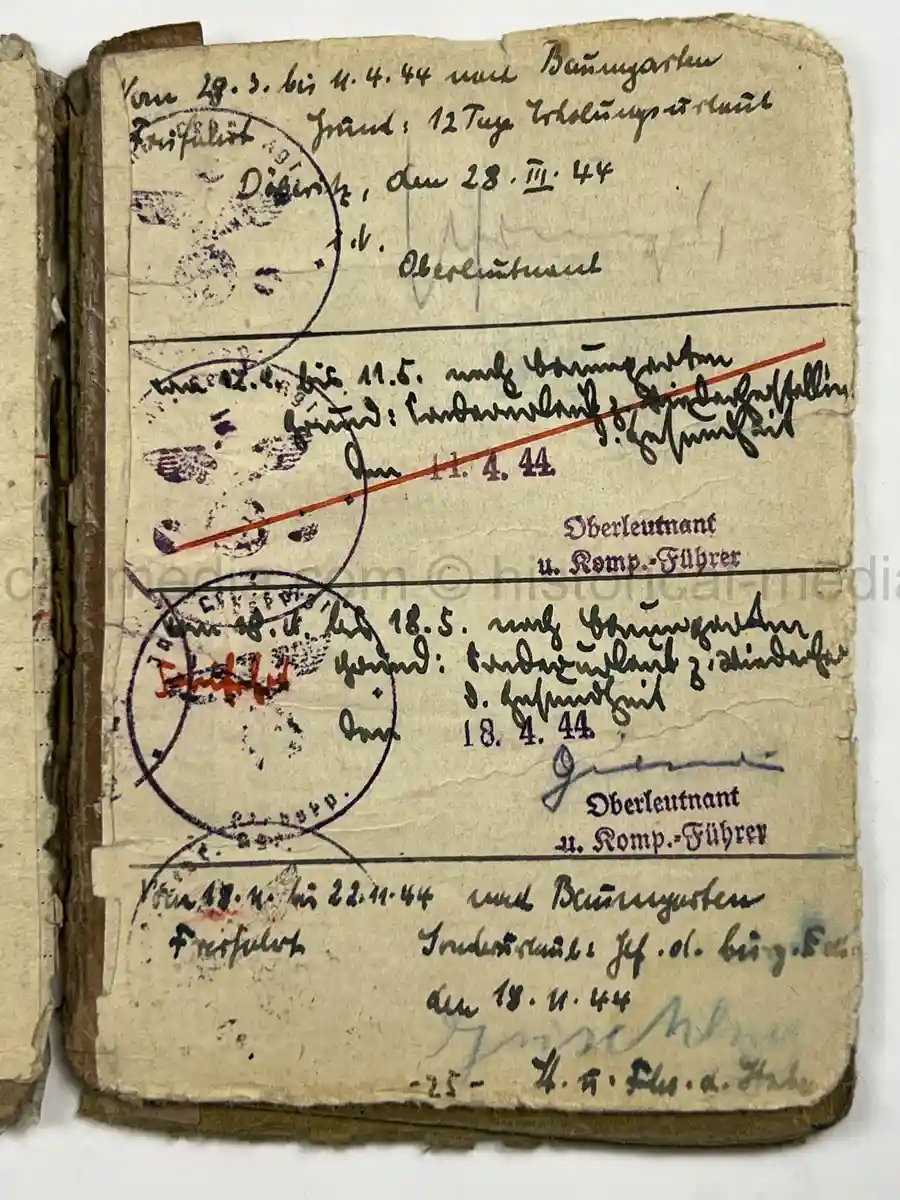 Vom 28.3. bis 11.4.44 nach Baumgarten
Freifahrt Grund: 12 Tage Erholungsurlaub
Döberitz, den 28.III.44
i.V.
Oberleutnant
vom 12.4. bis 11.5. nach Baumgarten
Grund: Sonderurlaub z. Wiederherstellung
d. Gesundheit
den 11. 4. 44
Oberleutnant
u. Komp.-Führer
vom 18.4. bis 18.5. nach Baumgarten
Grund: Sonderurlaub z. Wiederher
d. Gesundheit
den 18. 4. 44
Oberleutnant
u. Komp.-Führer
Vom 18.11. bis 22.11.44 nach Baumgarten
Freifahrt Sonderurlaub:
den 18.11.44
-25-
© historical-media